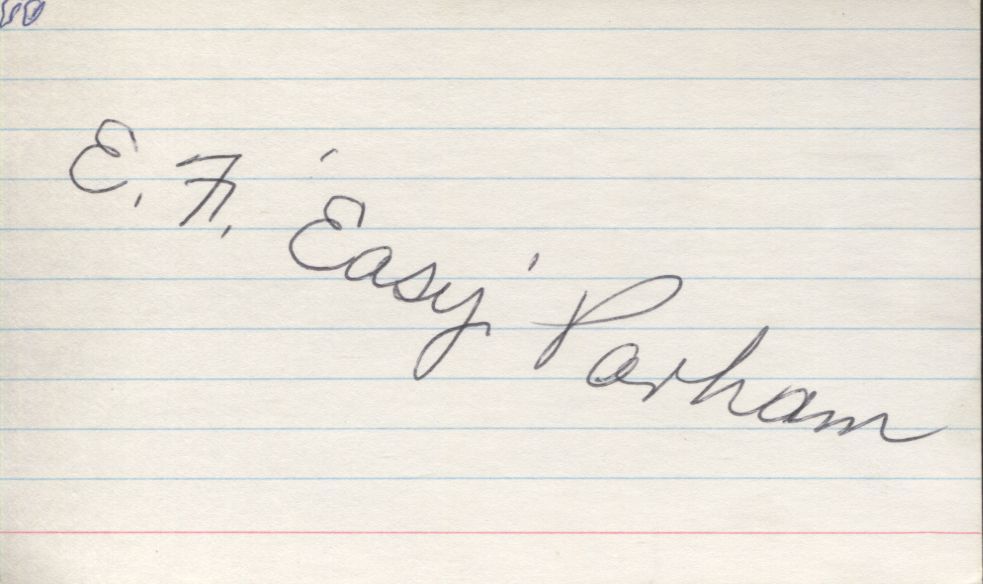 E. F. 'Easy' Parham